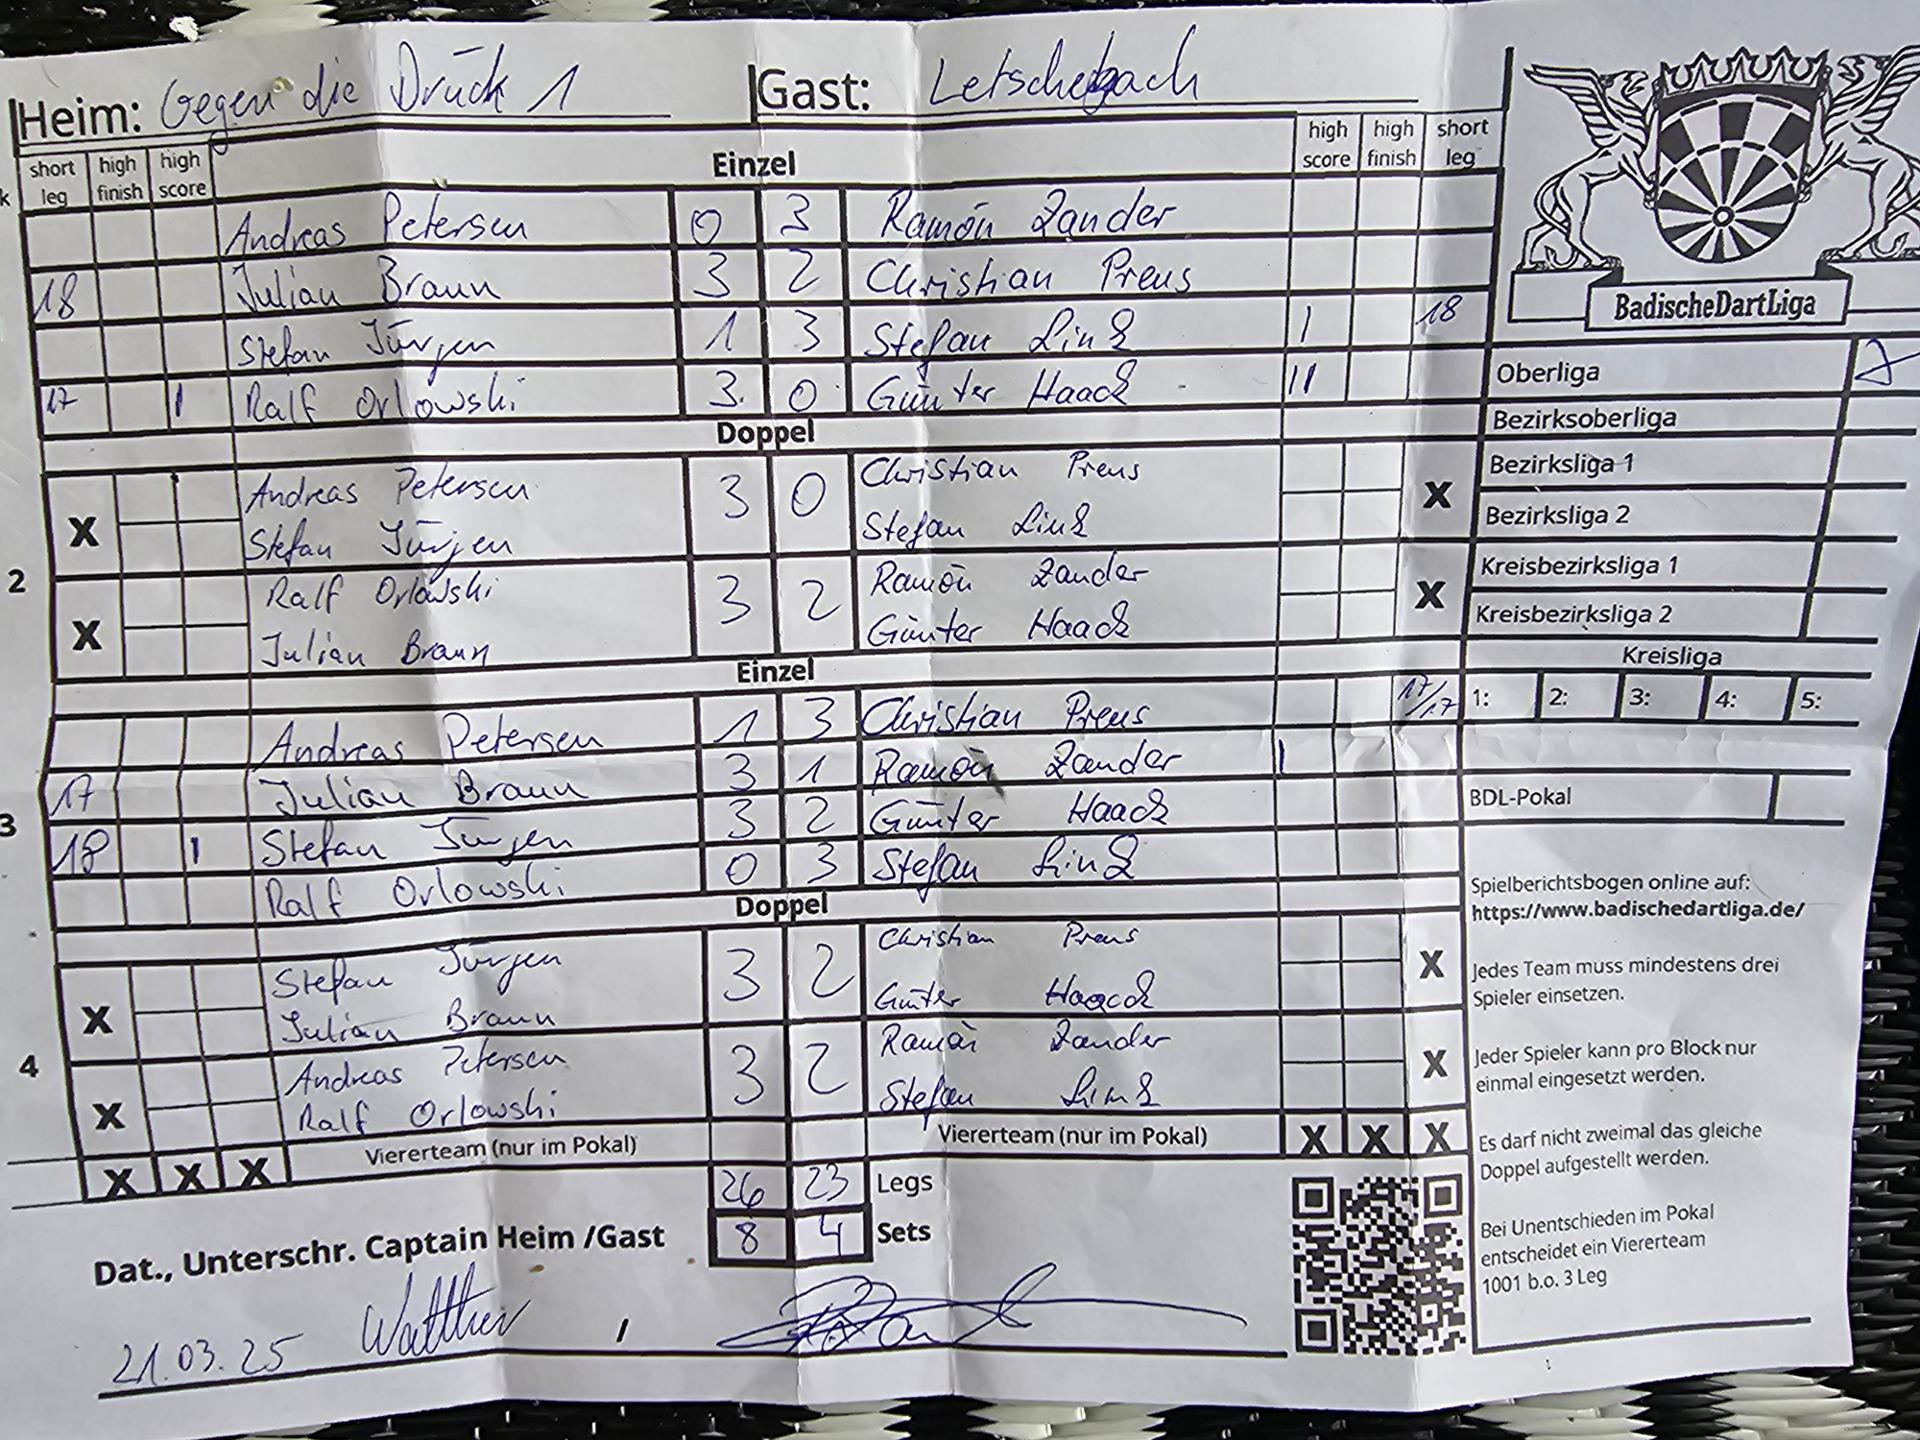 Heim: Gegen die Drück 1 Gast: Letschebach
k short leg high finish high score Einzel high score high finish short leg
Andreas Petersen 0 3 Ramón Zander
18 Julian Braun 3 2 Christian Preus
Stefan Jürgen 1 3 Stefan Link I 18
17 I Ralf Orlowski 3 0 Günter Haack II
Doppel
X Andreas Petersen 3 0 Christian Preus X
Stefan Jürgen Stefan Link
2
X Ralf Orlowski 3 2 Ramón Zander X
Julian Braun Günter Haack
Einzel
Andreas Petersen 1 3 Christian Preus 17/17
17 Julian Braun 3 1 Ramón Zander I
3
18 I Stefan Jürgen 3 2 Günter Haack
Ralf Orlowski 0 3 Stefan Link
Doppel
X Stefan Jürgen 3 2 Christian Preus X
Julian Braun Günter Haack
4
X Andreas Petersen 3 2 Ramón Zander X
Ralf Orlowski Stefan Link
X X X Vierterteam (nur im Pokal) Viererteam (nur im Pokal) X X X
26 23 Legs
8 4 Sets
Dat., Unterschr. Captain Heim /Gast
21.03.25 Walther /
BadischeDartLiga
Oberliga
Bezirksoberliga
Bezirksliga 1
Bezirksliga 2
Kreisbezirksliga 1
Kreisbezirksliga 2
Kreisliga
1: 2: 3: 4: 5:
BDL-Pokal
Spielberichtsbogen online auf:
https://www.badischedartliga.de/
Jedes Team muss mindestens drei
Spieler einsetzen.
Jeder Spieler kann pro Block nur
einmal eingesetzt werden.
Es darf nicht zweimal das gleiche
Doppel aufgestellt werden.
Bei Unentschieden im Pokal
entscheidet ein Viererteam
1001 b.o. 3 Leg